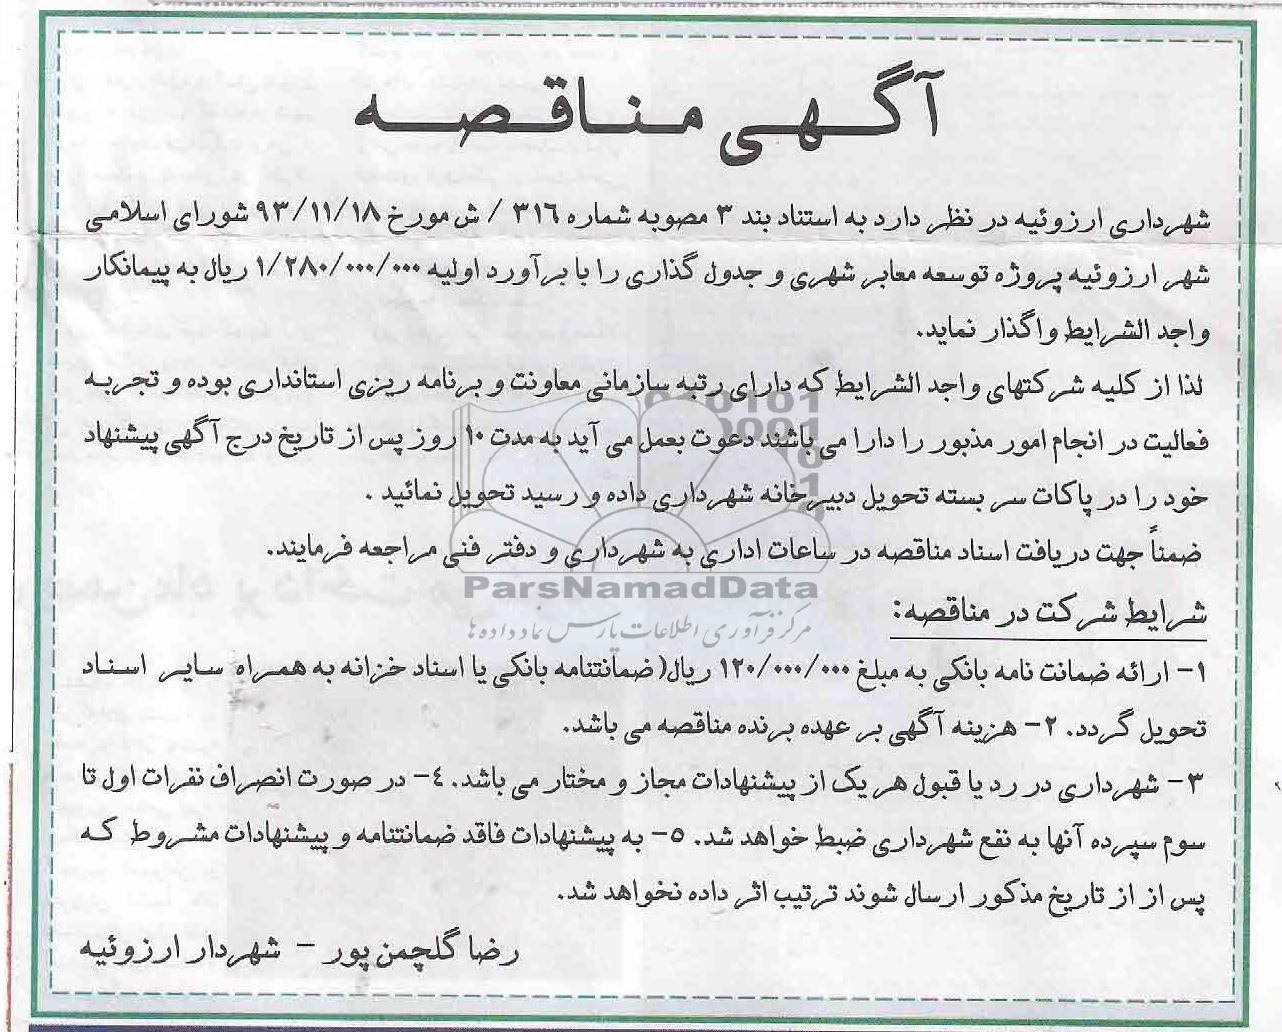 آگهی مناقصه
شهرداری ارزوئیه در نظر دارد به استناد بند ۳ مصوبه شماره ۳۱۶ / ش مورخ ۹۳/۱۱/۱۸ شورای اسلامی
شهر ارزوئیه پروژه توسعه معابر شهری و جدول گذاری را با برآورد اولیه ۱/۲۸۰/۰۰۰/۰۰۰ ریال به پیمانکار
واجد الشرایط واگذار نماید.
لذا از کلیه شرکتهای واجد الشرایط که دارای رتبه سازمانی معاونت و برنامه ریزی استانداری بوده و تجربه
فعالیت در انجام امور مذبور را دارا می باشند دعوت بعمل می آید به مدت ۱۰ روز پس از تاریخ درج آگهی پیشنهاد
خود را در پاکات سر بسته تحویل دبیرخانه شهرداری داده و رسید تحویل نمائید .
ضمناً جهت دریافت اسناد مناقصه در ساعات اداری به شهرداری و دفتر فنی مراجعه فرمایند.
ParsNamadData
شرایط شرکت در مناقصه:
مرکز فرآوری اطلاعات پارس نماد داده ها
۱- ارائه ضمانت نامه بانکی به مبلغ ۱۲۰/۰۰۰/۰۰۰ ریال( ضمانتنامه بانکی یا اسناد خزانه به همراه سایر اسناد
تحویل گردد. ۲- هزینه آگهی بر عهده برنده مناقصه می باشد.
۳- شهرداری در رد یا قبول هر یک از پیشنهادات مجاز و مختار می باشد. ٤- در صورت انصراف نفرات اول تا
سوم سپرده آنها به نفع شهرداری ضبط خواهد شد. ٥- به پیشنهادات فاقد ضمانتنامه و پیشنهادات مشروط که
پس از از تاریخ مذکور ارسال شوند ترتیب اثر داده نخواهد شد.
رضا گلچمن پور - شهردار ارزوئیه